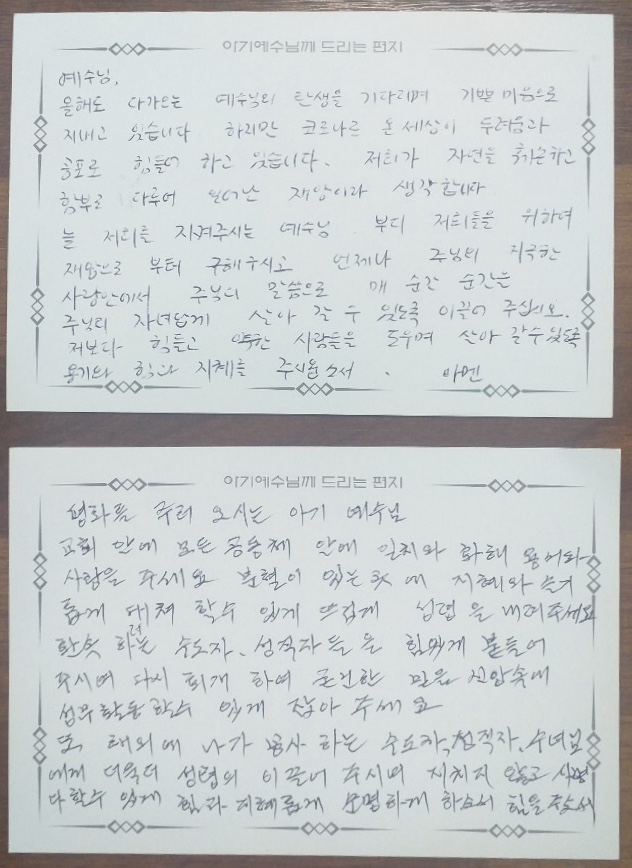 아기예수님께 드리는 편지
예수님,
올해도 다가오는 예수님의 탄생을 기다리며 기쁜 마음으로
지내고 있습니다 하지만 코로나로 온 세상이 두려움과
공포로 힘들어 하고 있습니다. 저희가 자연을 훼손하고
함부로 다루어 일어난 재앙이라 생각합니다
늘 저희를 지켜주시는 예수님 부디 저희들을 위하여
재앙으로 부터 구해주시고 언제나 주님의 지극한
사랑안에서 주님의 말씀으로 매 순간 순간을
주님의 자녀답게 살아 갈 수 있도록 이끌어 주십시오.
저보다 힘들고 약한 사람들을 도우며 살아 갈수 있도록
용기와 힘과 지혜를 주시옵소서. 아멘
아기예수님께 드리는 편지
평화를 주러 오시는 아기 예수님
교회 안에 모든 공동체 안에 일치와 화해 용서와
사랑을 주세요 분열이 있는 곳에 지혜와 슬기
롭게 대쳐 할수 있게 뜨겁게 성령을 내려주세요
수도자, 성직자들을 힘있게 붙들어
주시며 다시 회개 하여 굳건한 믿음 신앙속에
성무활동할수 있게 잡아 주세요
또 해외에 나가 봉사 하는 수도자, 성직자, 수녀님
에게 더욱더 성령의 이끌어 주시며 지치지 않고 사명
다할수 있게 힘과 지혜롭게 현명하게 하소서 힘을 주소서